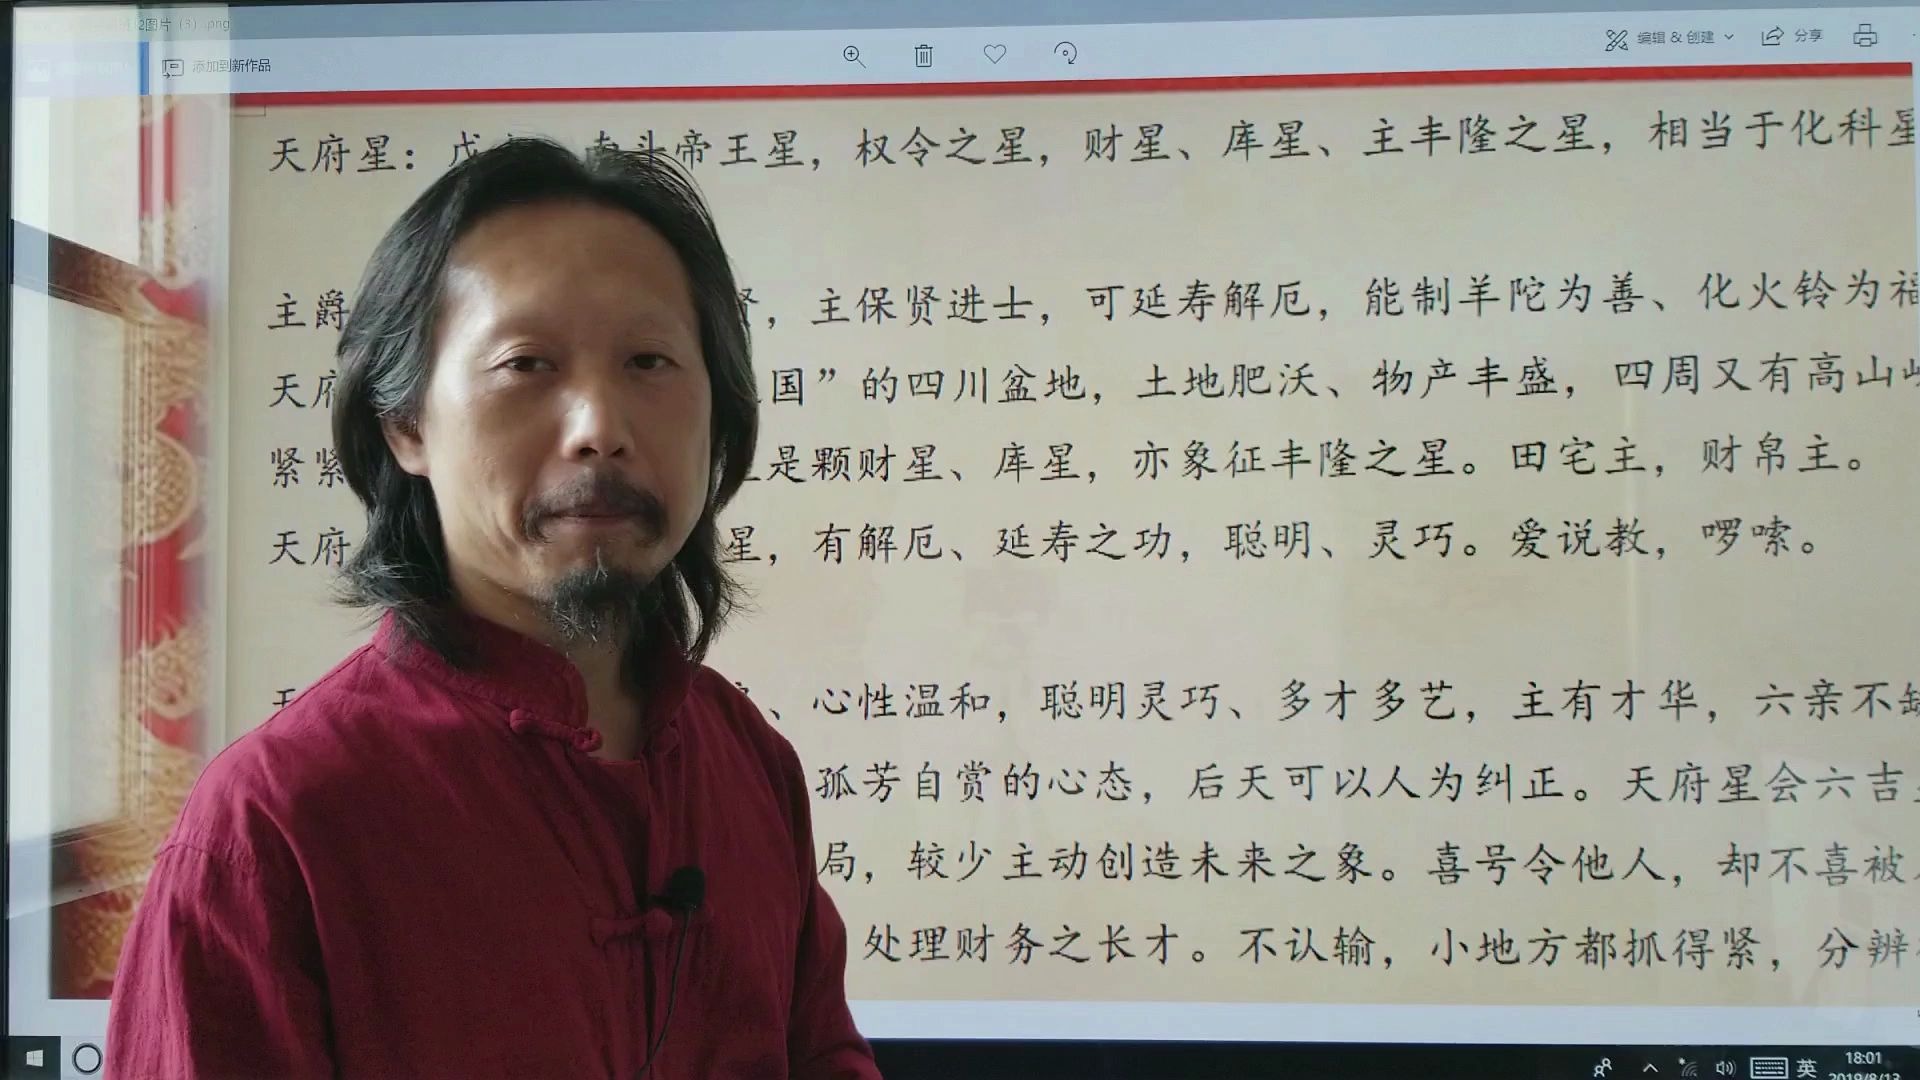 2图片 (3) .png
添加到新作品
编辑 & 创建
分享
天府星：戊 南斗帝王星，权令之星，财星、库星、主丰隆之星，相当于化科星
主爵 贤，主保贤进士，可延寿解厄，能制羊陀为善、化火铃为福
天府 国”的四川盆地，土地肥沃、物产丰盛，四周又有高山
紧紧 是颗财星、库星，亦象征丰隆之星。田宅主，财帛主。
天府 星，有解厄、延寿之功，聪明、灵巧。爱说教，啰嗦。
、心性温和，聪明灵巧、多才多艺，主有才华，六亲不缺
孤芳自赏的心态，后天可以人为纠正。天府星会六吉
局，较少主动创造未来之象。喜号令他人，却不喜被
处理财务之长才。不认输，小地方都抓得紧，分辨
英
18:01
2019/8/13